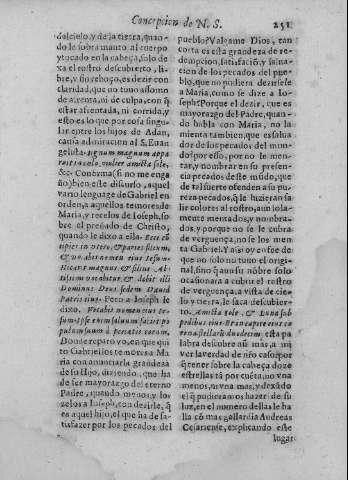 Concepcion de N. S. 251
dos cielo, y de la tierra, quan-
do le sobra manto al cuerpo
y tocado en la cabeça, solo de
xa el rostro descubierto, li-
bre, y sin reboço, es dezir con
claridad, que no tuuo assomo
de afrenta, ni de culpa, con q̃
estar afrentada, ni corrida, y
esto es lo que por cosa singu-
lar entre los hijos de Adan,
causa admiracion al S. Euan
gelista. signum magnum appa
ruit in cælo, mulier amicta sole,
&c. Confirma (si no me enga
ño) bien este discurso, aquel
vario lenguage de Gabriel en
orden, a aquellos temores de
Maria, y recelos de Ioseph, so
bre el preñado de Christo,
quando le dixo a ella. Ecce cō
cipies in vtero, & paries filium,
& vocabis nomen eius Iesum.
Hic erit magnus, & filius Al-
tissimi vocabitur, & dabit illi
Dominus Deus sedem Dauid
Patris eius. Pero a Ioseph le
dixo. Vocabis nomen eius Ie-
sum: ipse enim saluum faciet po
pulum suum à peccatis eorum.
Donde reparo yo, en que qui
tò Gabriel los temores a Ma
ria con anunciarla grandeza
de su Hijo, diziendo, que ha
de ser mayorazgo del eterno
Padre, quando menos, y los
zelos a Ioseph, con dezirle, q̃
es aquel hijo, el que ha de sa-
tisfazer por los pecados del
pueblo? Valgame Dios, tan
corta es esta grandeza de re-
dempcion, satisfació, y salua
cion de los pecados del pue-
blo, que no pudiera dezirse
a Maria, como se dize a Io-
seph? Porque el dezir, que es
mayorazgo del Padre, quan-
do habla con Maria, no la
mienta tambien, que es salua
dor de los pecados del mun-
do? por esso, por no le men-
tar, y nombrar en su presen-
cia pecados deste mũdo, que
de tal suerte ofenden a su pu-
reza pecados, q̃ le hizieran sa
lir colores al rostro, aun sola-
mente mentados, y nombra-
dos, y porque no se le cubra
de verguença, no se los men
ta Gabriel. Y assi oy en fee de
que no solo no tuuo el origi-
nal, sino q̃ aun su nõbre solo
ocasionara a cubrir el rostro
de verguença, a vista de cie-
lo y tierra, le saca descubier-
to. Amicta sole, & Luna sub
pedibus eius & in capite eius co
rona stellarũ duodecim, esta pa
labra descubre aũ mas, a mi
ver la verdad de nr̃o caso: por
q̃ tener sobre la cabeça doze
estrellas tã por cuẽta, no vna
menos, ni vna mas, y dexado
el q̃ pudieramos hazer de su
luz, en el numero dellas le ha
lla cõ mas gallardia Andreas
Cesariense, explicando este
lugar